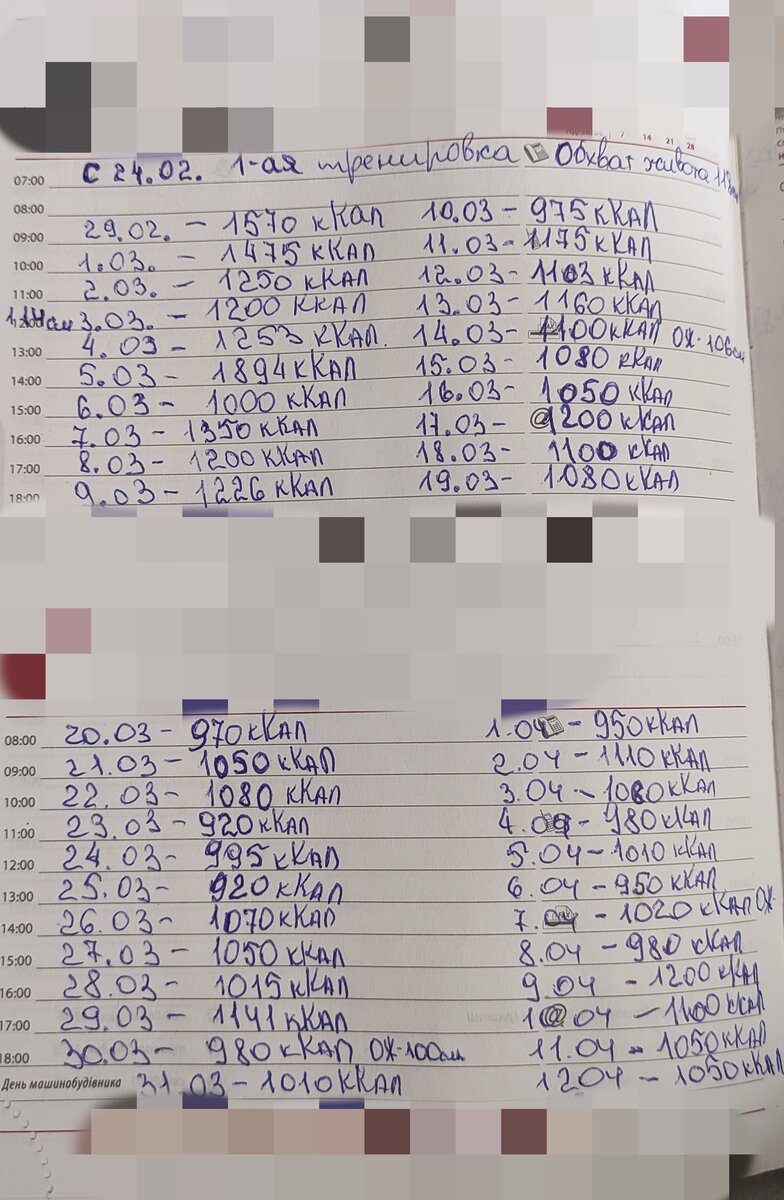 7 14 21 28
07:00 С 24.02. 1-ая тренировка Обхват живота
08:00
29.02. - 1570 кКал 10.03 - 975 кКАЛ
09:00
1.03. - 1475 кКАЛ 11.03 - 1175 кКАЛ
10:00
2.03. - 1250 кКАЛ 12.03 - 1103 кКАЛ
11:00
3.03. - 1200 кКАЛ 13.03 - 1160 кКАЛ
4.03 - 1253 кКАЛ. 14.03 - 1100 кКАЛ ОЖ-106см
13:00
5.03 - 1894 кКАЛ 15.03 - 1080 кКАЛ
14:00
6.03 - 1000 кКАЛ 16.03 - 1050 кКАЛ
15:00
7.03 - 1350 кКАЛ 17.03 - 1200 кКАЛ
16:00
8.03 - 1200 кКАЛ 18.03 - 1100 кКАЛ
17:00
9.03 - 1226 кКАЛ 19.03 - 1080 кКАЛ
18:00
08:00 20.03 - 970 кКАЛ 1.04 - 950 кКАЛ
09:00 21.03 - 1050 кКАЛ 2.04 - 1110 кКАЛ
10:00 22.03 - 1080 кКАЛ 3.04 - 1080 кКАЛ
11:00 23.03 - 920 кКАЛ 4. - 980 кКАЛ
12:00 24.03 - 995 кКАЛ 5.04 - 1010 кКАЛ
13:00 25.03 - 920 кКАЛ 6.04 - 950 кКАЛ
14:00 26.03 - 1070 кКАЛ 7. - 1020 кКАЛ ОЖ-
15:00 27.03 - 1050 кКАЛ 8.04 - 980 кКАЛ
16:00 28.03 - 1015 кКАЛ 9.04 - 1200 кКАЛ
17:00 29.03 - 1141 кКАЛ 04 - 1100 кКАЛ
18:00 30.03 - 980 кКАЛ ОЖ-100см 11.04 - 1050 кКАЛ
День машинобудівника 31.03 - 1010 кКАЛ 1204 - 1050 кКАЛ